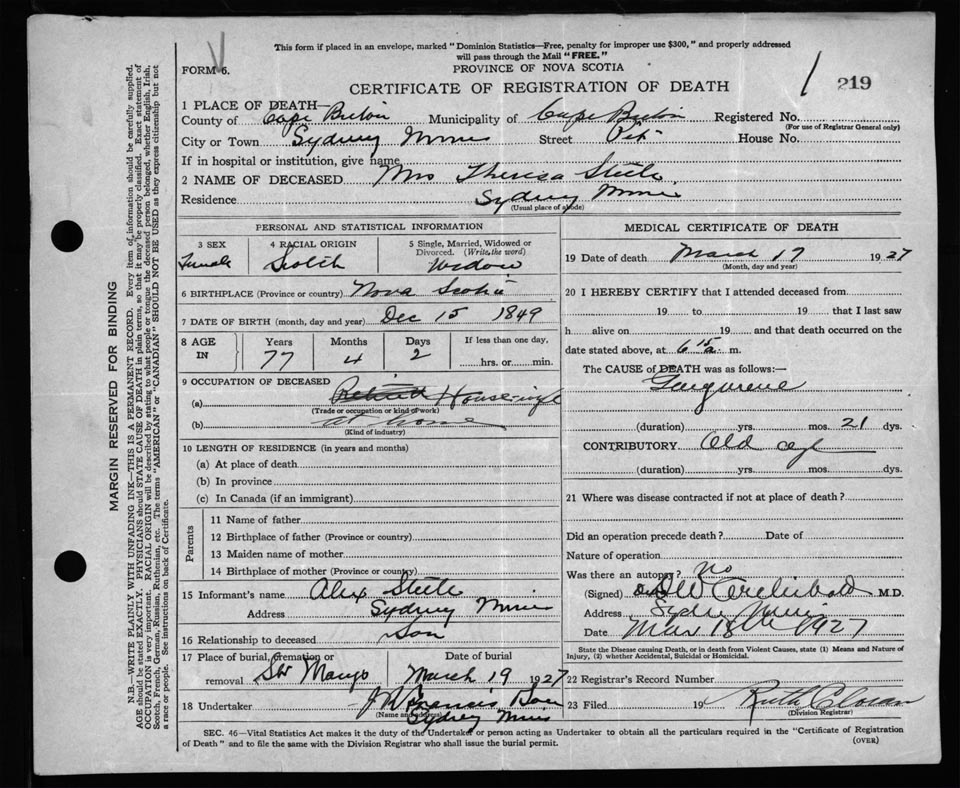 This form if placed in an envelope, marked "Dominion Statistics—Free, penalty for improper use $300," and properly addressed
will pass through the Mail "FREE."
FORM 6.
PROVINCE OF NOVA SCOTIA
CERTIFICATE OF REGISTRATION OF DEATH
219
1 PLACE OF DEATH—
County of Cape Breton Municipality of Cape Breton Registered No.
(For use of Registrar General only)
City or Town Sydney Mines Street Pitt House No.
If in hospital or institution, give name
2 NAME OF DECEASED Mrs Theresa Steele
Residence Sydney Mines
(Usual place of abode)
PERSONAL AND STATISTICAL INFORMATION
3 SEX 4 RACIAL ORIGIN 5 Single, Married, Widowed or Divorced. (Write the word)
Female Scotch Widow
6 BIRTHPLACE (Province or country) Nova Scotia
7 DATE OF BIRTH (month, day and year) Dec 15 1849
8 AGE IN Years Months Days If less than one day,
77 4 2 hrs. or min.
9 OCCUPATION OF DECEASED
(a) Housewife
(Trade or occupation or kind of work)
(b) at home
(Kind of industry)
10 LENGTH OF RESIDENCE (in years and months)
(a) At place of death
(b) In province
(c) In Canada (if an immigrant)
Parents
11 Name of father
12 Birthplace of father (Province or country)
13 Maiden name of mother
14 Birthplace of mother (Province or country)
15 Informant's name Alex Steele
Address Sydney Mines
16 Relationship to deceased Son
17 Place of burial, cremation or removal Date of burial
March 19 1927
18 Undertaker Francis
(Name and address)
Sydney Mines
MEDICAL CERTIFICATE OF DEATH
19 Date of death March 17 1927
(Month, day and year)
20 I HEREBY CERTIFY that I attended deceased from
19 to 19 that I last saw
h alive on 19 and that death occurred on
date stated above, at 6 15 a. m.
The CAUSE of DEATH was as follows:—
Gangrene
(duration) yrs. mos. 21 dys.
CONTRIBUTORY Old age
(duration) yrs. mos. dys.
21 Where was disease contracted if not at place of death?
Did an operation precede death? Date of
Nature of operation
Was there an autopsy? No
(Signed) Archibald M.D.
Address Sydney Mines
Date Mar 18th 1927
State the Disease causing Death, or in death from Violent Causes, state (1) Means and Nature of
Injury, (2) whether Accidental, Suicidal or Homicidal.
22 Registrar's Record Number
23 Filed 19 Ruth
(Division Registrar)
SEC. 46—Vital Statistics Act makes it the duty of the Undertaker or person acting as Undertaker to obtain all the particulars required in the "Certificate of Registration
of Death" and to file the same with the Division Registrar who shall issue the burial permit.
(OVER)
MARGIN RESERVED FOR BINDING
N.B.—WRITE PLAINLY WITH UNFADING INK—THIS IS A PERMANENT RECORD. Every item of information should be carefully supplied.
AGE should be stated EXACTLY. PHYSICIANS should STATE CAUSE OF DEATH in plain terms, so that it may be properly classified. Exact statement of
OCCUPATION is very important. RACIAL ORIGIN will be described by stating to what people or tongue the deceased person belonged, whether English, Irish,
Scotch, French, German, Russian, Ruthenian, etc. The terms "AMERICAN" or "CANADIAN" SHOULD NOT BE USED as they express citizenship but not
a race or people. See instructions on back of Certificate.